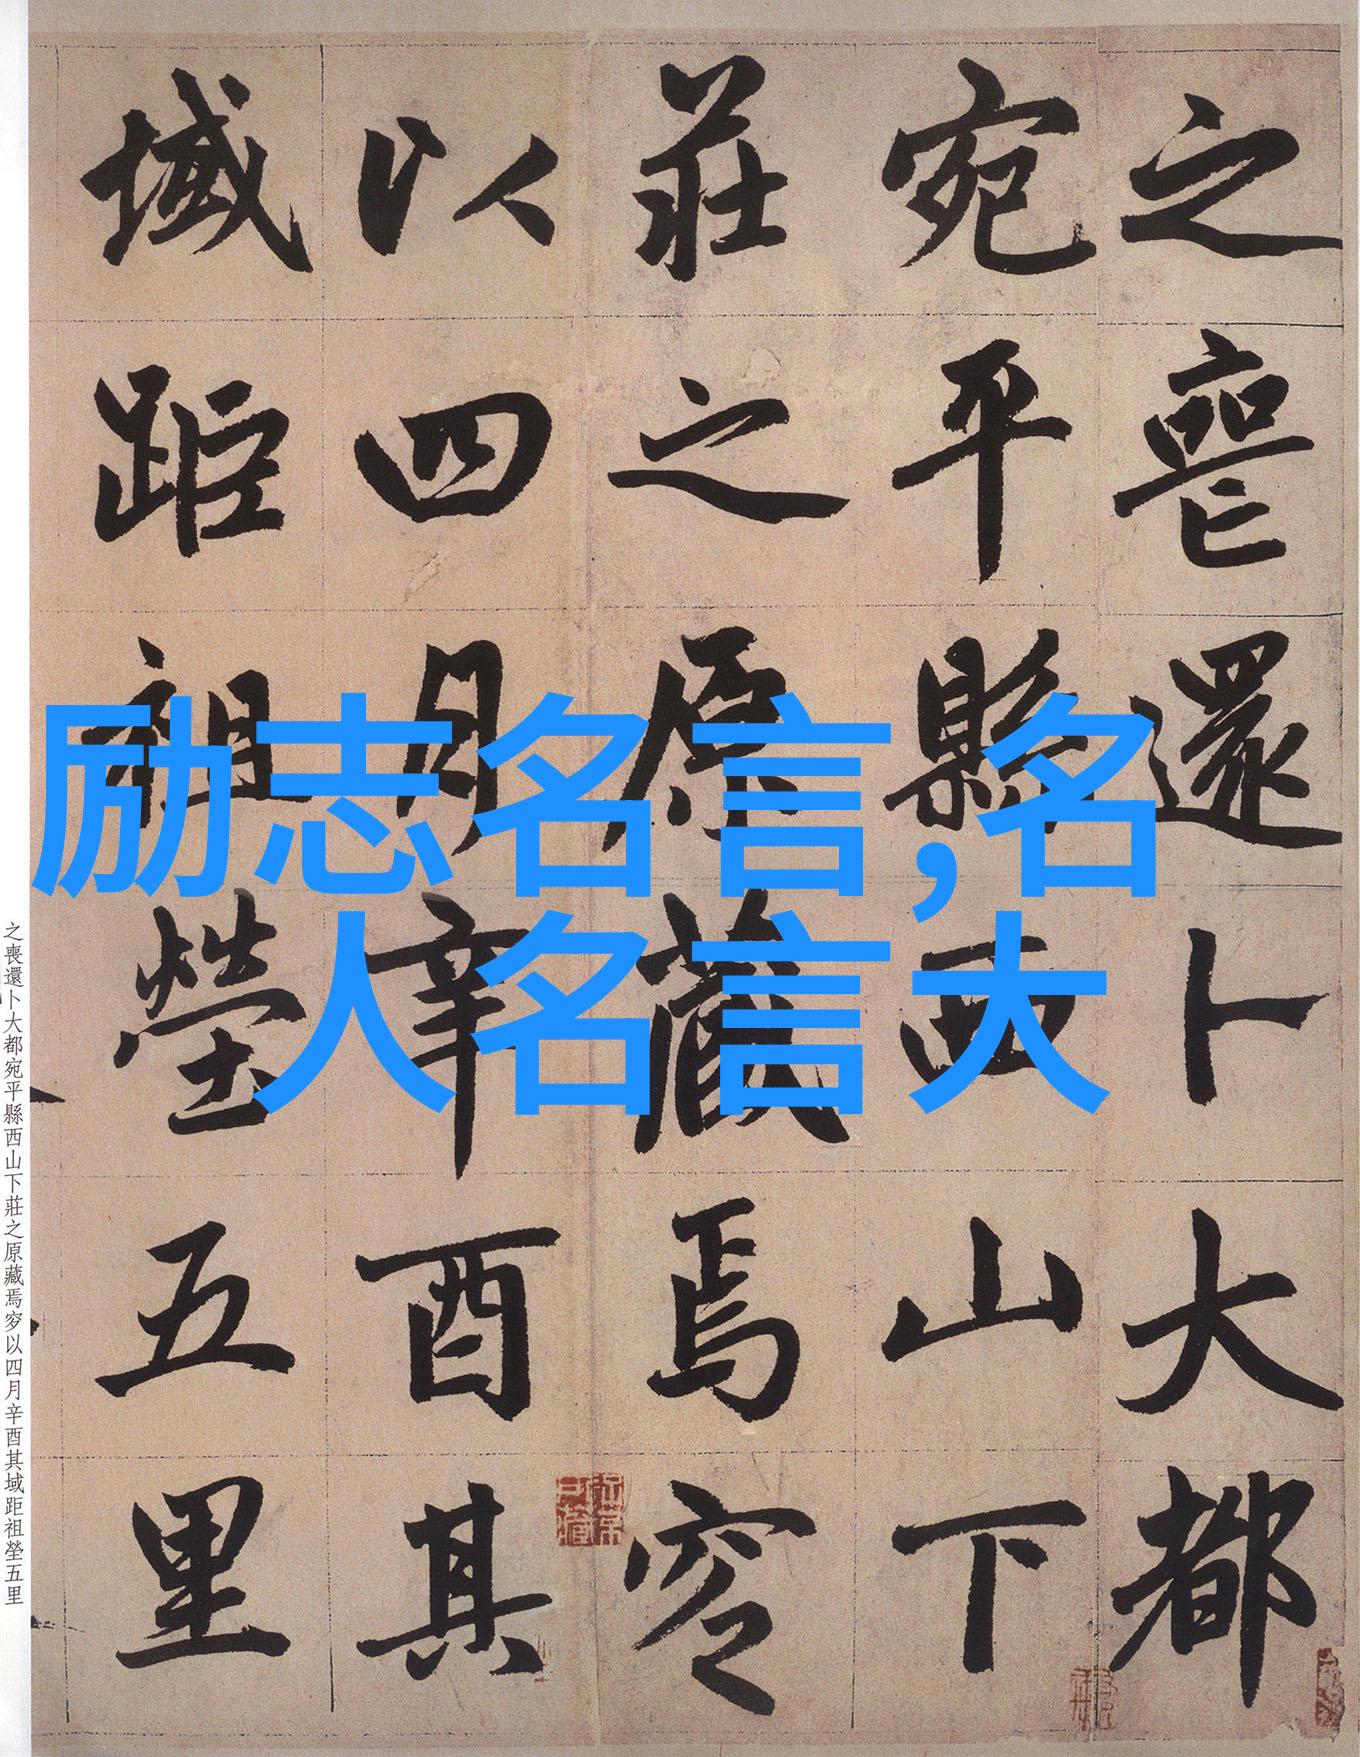 之喪還卜大都
宛平縣西山下
莊之原藏焉穸
以四月辛酉其
域距祖塋五里
励志名言,名
人名言大
之喪還卜大都宛平縣西山下莊之原藏焉穸以四月辛酉其域距祖塋五里